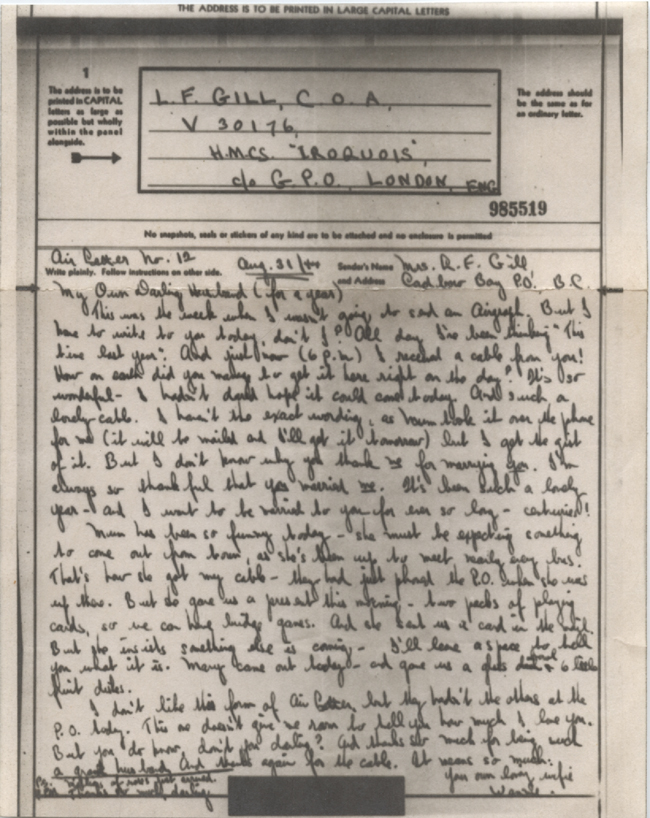 THE ADDRESS IS TO BE PRINTED IN LARGE CAPITAL LETTERS
1
The address is to be
printed in CAPITAL
letters as large as
possible but wholly
within the panel
alongside.
L. F. GILL, C.O.A,
V 30176,
H.M.C.S. "IROQUOIS",
c/o G.P.O., LONDON, ENG
The address should
be the same as for
an ordinary letter.
985519
No snapshots, seals or stickers of any kind are to be attached and no enclosure is permitted
Air Letter No. 12
Write plainly. Follow instructions on other side.
Aug. 31/44
Sender's Name
and Address
Mrs. R. F. Gill
Cadboro Bay P.O. B.C.
My Own Darling Husband (for a year)
This was the week when I wasn't going to send an Airgraph. But I
have to write to you today, don't I? All day I've been thinking "This
time last year". And just now (6 p.m.) I received a cable from you!
How on earth did you manage to get it here right on the day? It's so
wonderful - I hadn't dared hope it could come today. And such a
lovely cable. I haven't the exact wording, as Mum took it over the phone
for me (it will be mailed and I'll get it tomorrow) but I got the gist
of it. But I don't know why you thank me for marrying you. I'm
always so thankful that you married me. It's been such a lovely
year - and I want to be married to you for ever so long - centuries!
Mum has been so funny today - she must be expecting something
to come out from town, as she's been up to meet nearly every bus.
That's how she got my cable - they had just phoned the P.O. when she was
up there. But she gave us a present this morning - two packs of playing
cards, so we can have bridge games. And she sent us a card in the mail.
But she insists something else is coming - I'll leave a space to tell
you what it is. Mary came out today - and gave us a glass & 6 little
fruit dishes.
I don't like this form of Air Letter, but they hadn't the others at the
P.O. today. This one doesn't give me room to tell you how much I love you.
But you do know, don't you darling? And thanks so much for being such
a grand husband. And thanks again for the cable. It means so much.
your own loving wife
P.S. of roses just arrived.
Thanks so much, darling